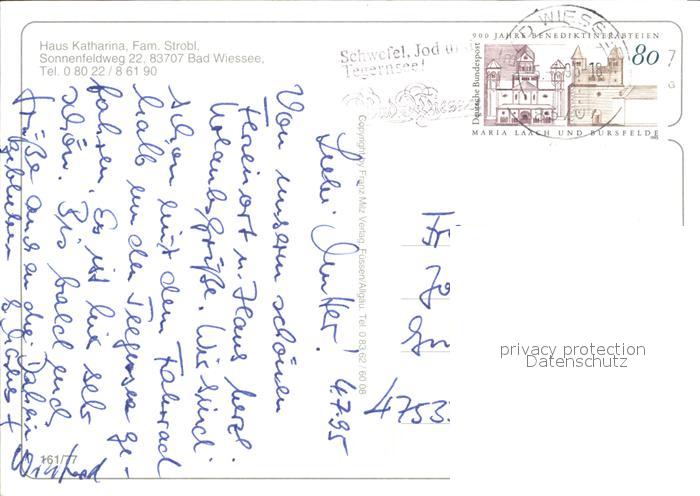 Haus Katharina, Fam. Strobl,
Sonnenfeldweg 22, 83707 Bad Wiessee,
Tel. 0 80 22 / 8 61 90
Schwefel, Jod
Tegernsee!
Bad Wiessee
WIESSEE
900 JAHRE BENEDIKTINERABTEIEN
Deutsche Bundespost
80
MARIA LAACH UND BURSFELDE
Copyright by Franz Milz Verlag, Füssen/Allgäu, Tel. 0 83 62 / 60 06
Liebe Mutter! 4.7.95
Von unserem schönen
Ferienort u. Haus herzl
Urlaubsgrüße. Wir sind
schon mit dem Fahrrad
halb um den Tegernsee ge-
fahren. Es ist hier sehr
schön. Bis bald und
Grüße auch an die Daheim
Winfried
4753
161/77
privacy protection
Datenschutz